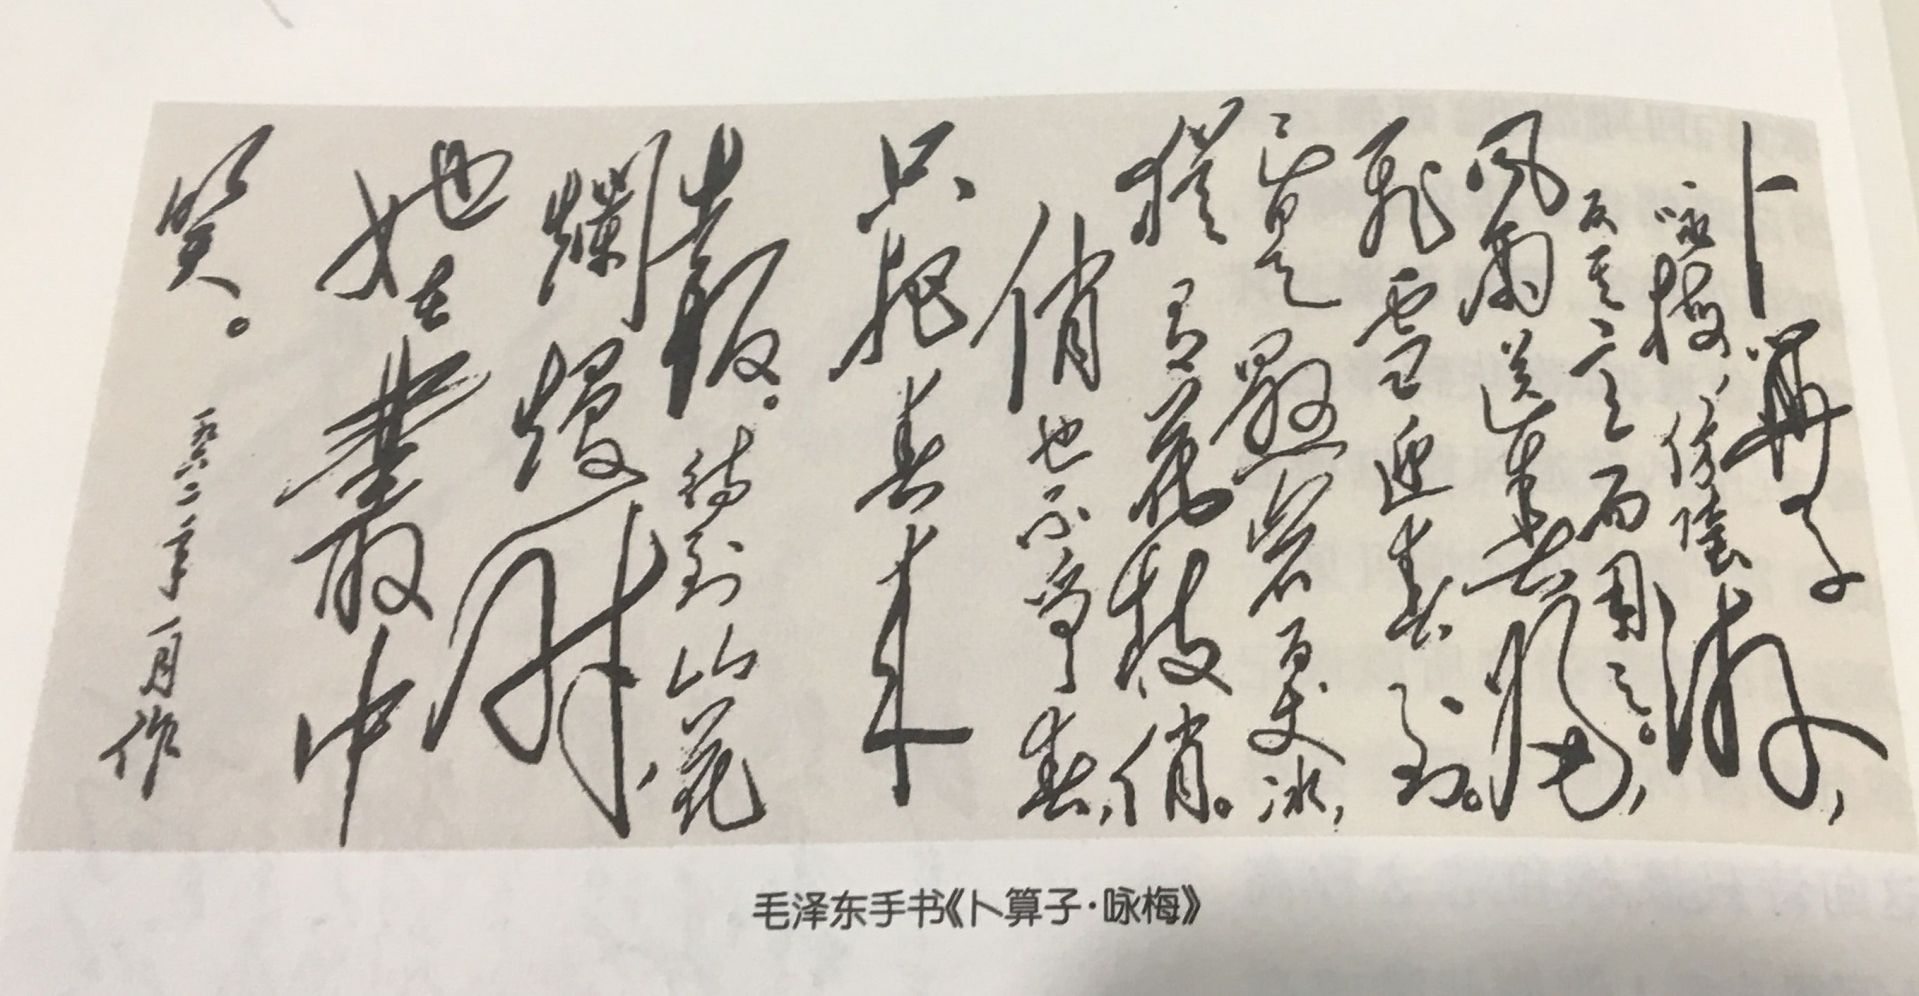 卜算子
咏梅，仿陸游，
反其意而用之。
风雨送春归，
飛雪迎春到。
已是懸岩百丈冰，
猶有花枝俏。
俏也不争春，
只把春来
報。待到山花
爛熳时，
她在叢中
笑。
一九六二年一月作
毛泽东手书《卜算子·咏梅》